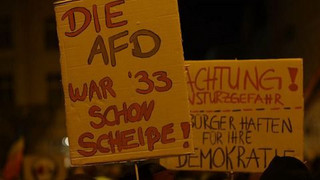 DIE
AFD
WAR '33
SCHON
SCHEIßE!
ACHTUNG!
NSTURZGEFAHR
BÜRGER HAFTEN
FÜR IHRE
DEMOKRATIE